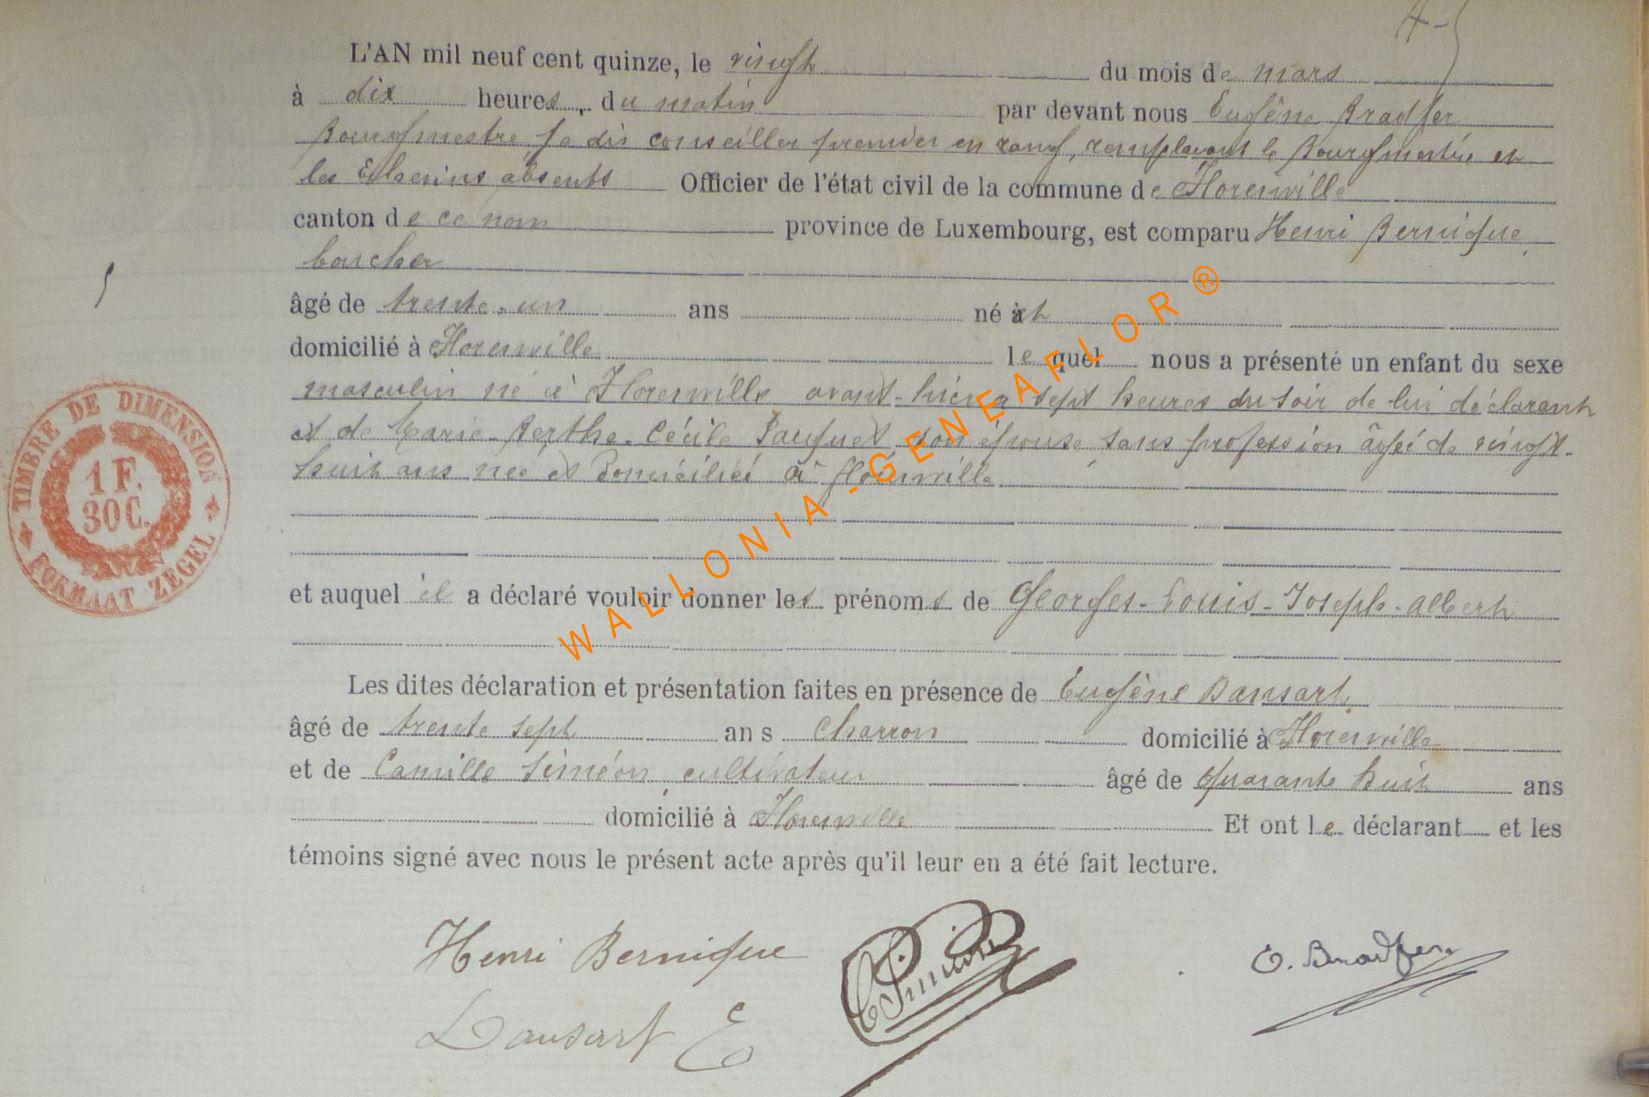 L'AN mil neuf cent quinze, le vingt du mois de mars
à dix heures, du matin par devant nous Eugène Bradfer
Bourgmestre je dis conseiller premier en rang, remplaçant le Bourgmestre et
les Echevins absents Officier de l'état civil de la commune de Florenville
canton de ce nom province de Luxembourg, est comparu Henri Bernique,
boucher
âgé de trente-un ans né et
domicilié à Florenville lequel nous a présenté un enfant du sexe
masculin né à Florenville avant-hier à sept heures du soir de lui déclarant
et de Marie-Berthe-Cécile son épouse sans profession âgée de vingt-
huit ans née et domiciliée à Florenville
et auquel il a déclaré vouloir donner les prénoms de Georges-Louis-Joseph-Albert
Les dites déclaration et présentation faites en présence de Eugène Dansart
âgé de trente sept ans charron domicilié à Florenville
et de Camille Siméon, cultivateur âgé de quarante huit ans
domicilié à Florenville Et ont le déclarant et les
témoins signé avec nous le présent acte après qu'il leur en a été fait lecture.
Henri Bernique
C Siméon
E. Bradfer
Dansart E
TIMBRE DE DIMENSION
1 F.
30 C.
FORMAAT ZEGEL
WALLONIA-GENEAFLOR ®